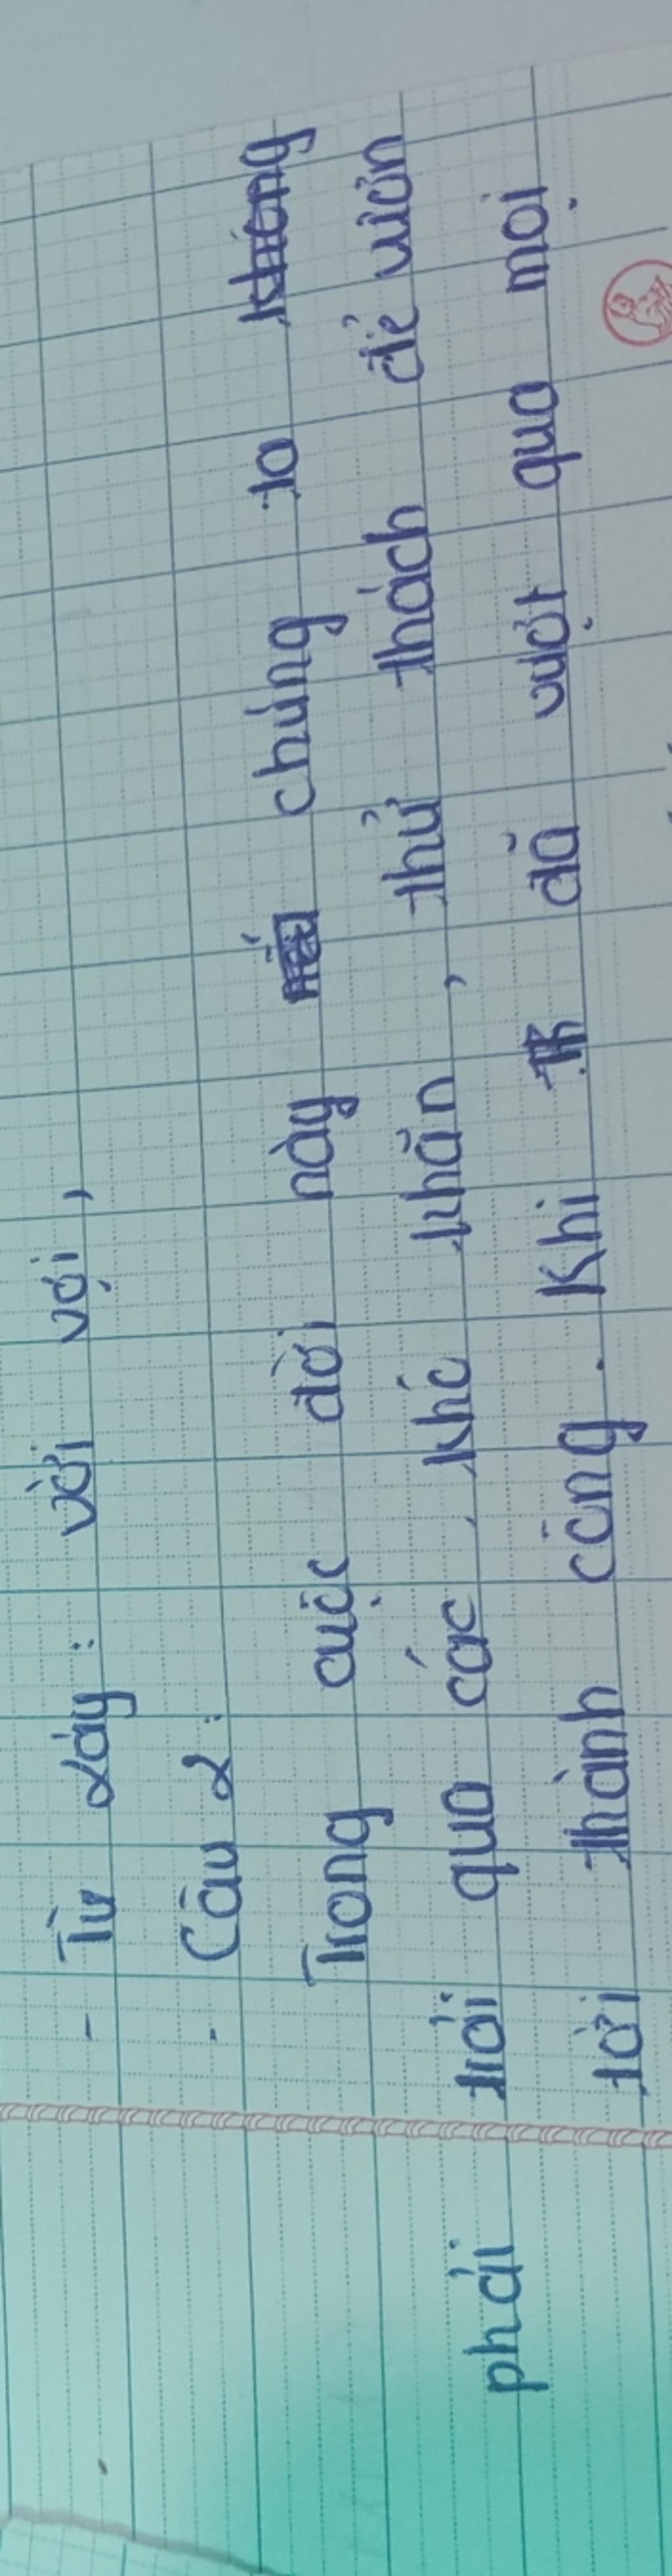 - Từ láy : vời vợi,
- Câu 2:
Trong cuộc đời này nếu chúng ta không
phải trải qua các, khó khăn, thử thách để vươn
tới thành công. Khi đã vượt qua mọi